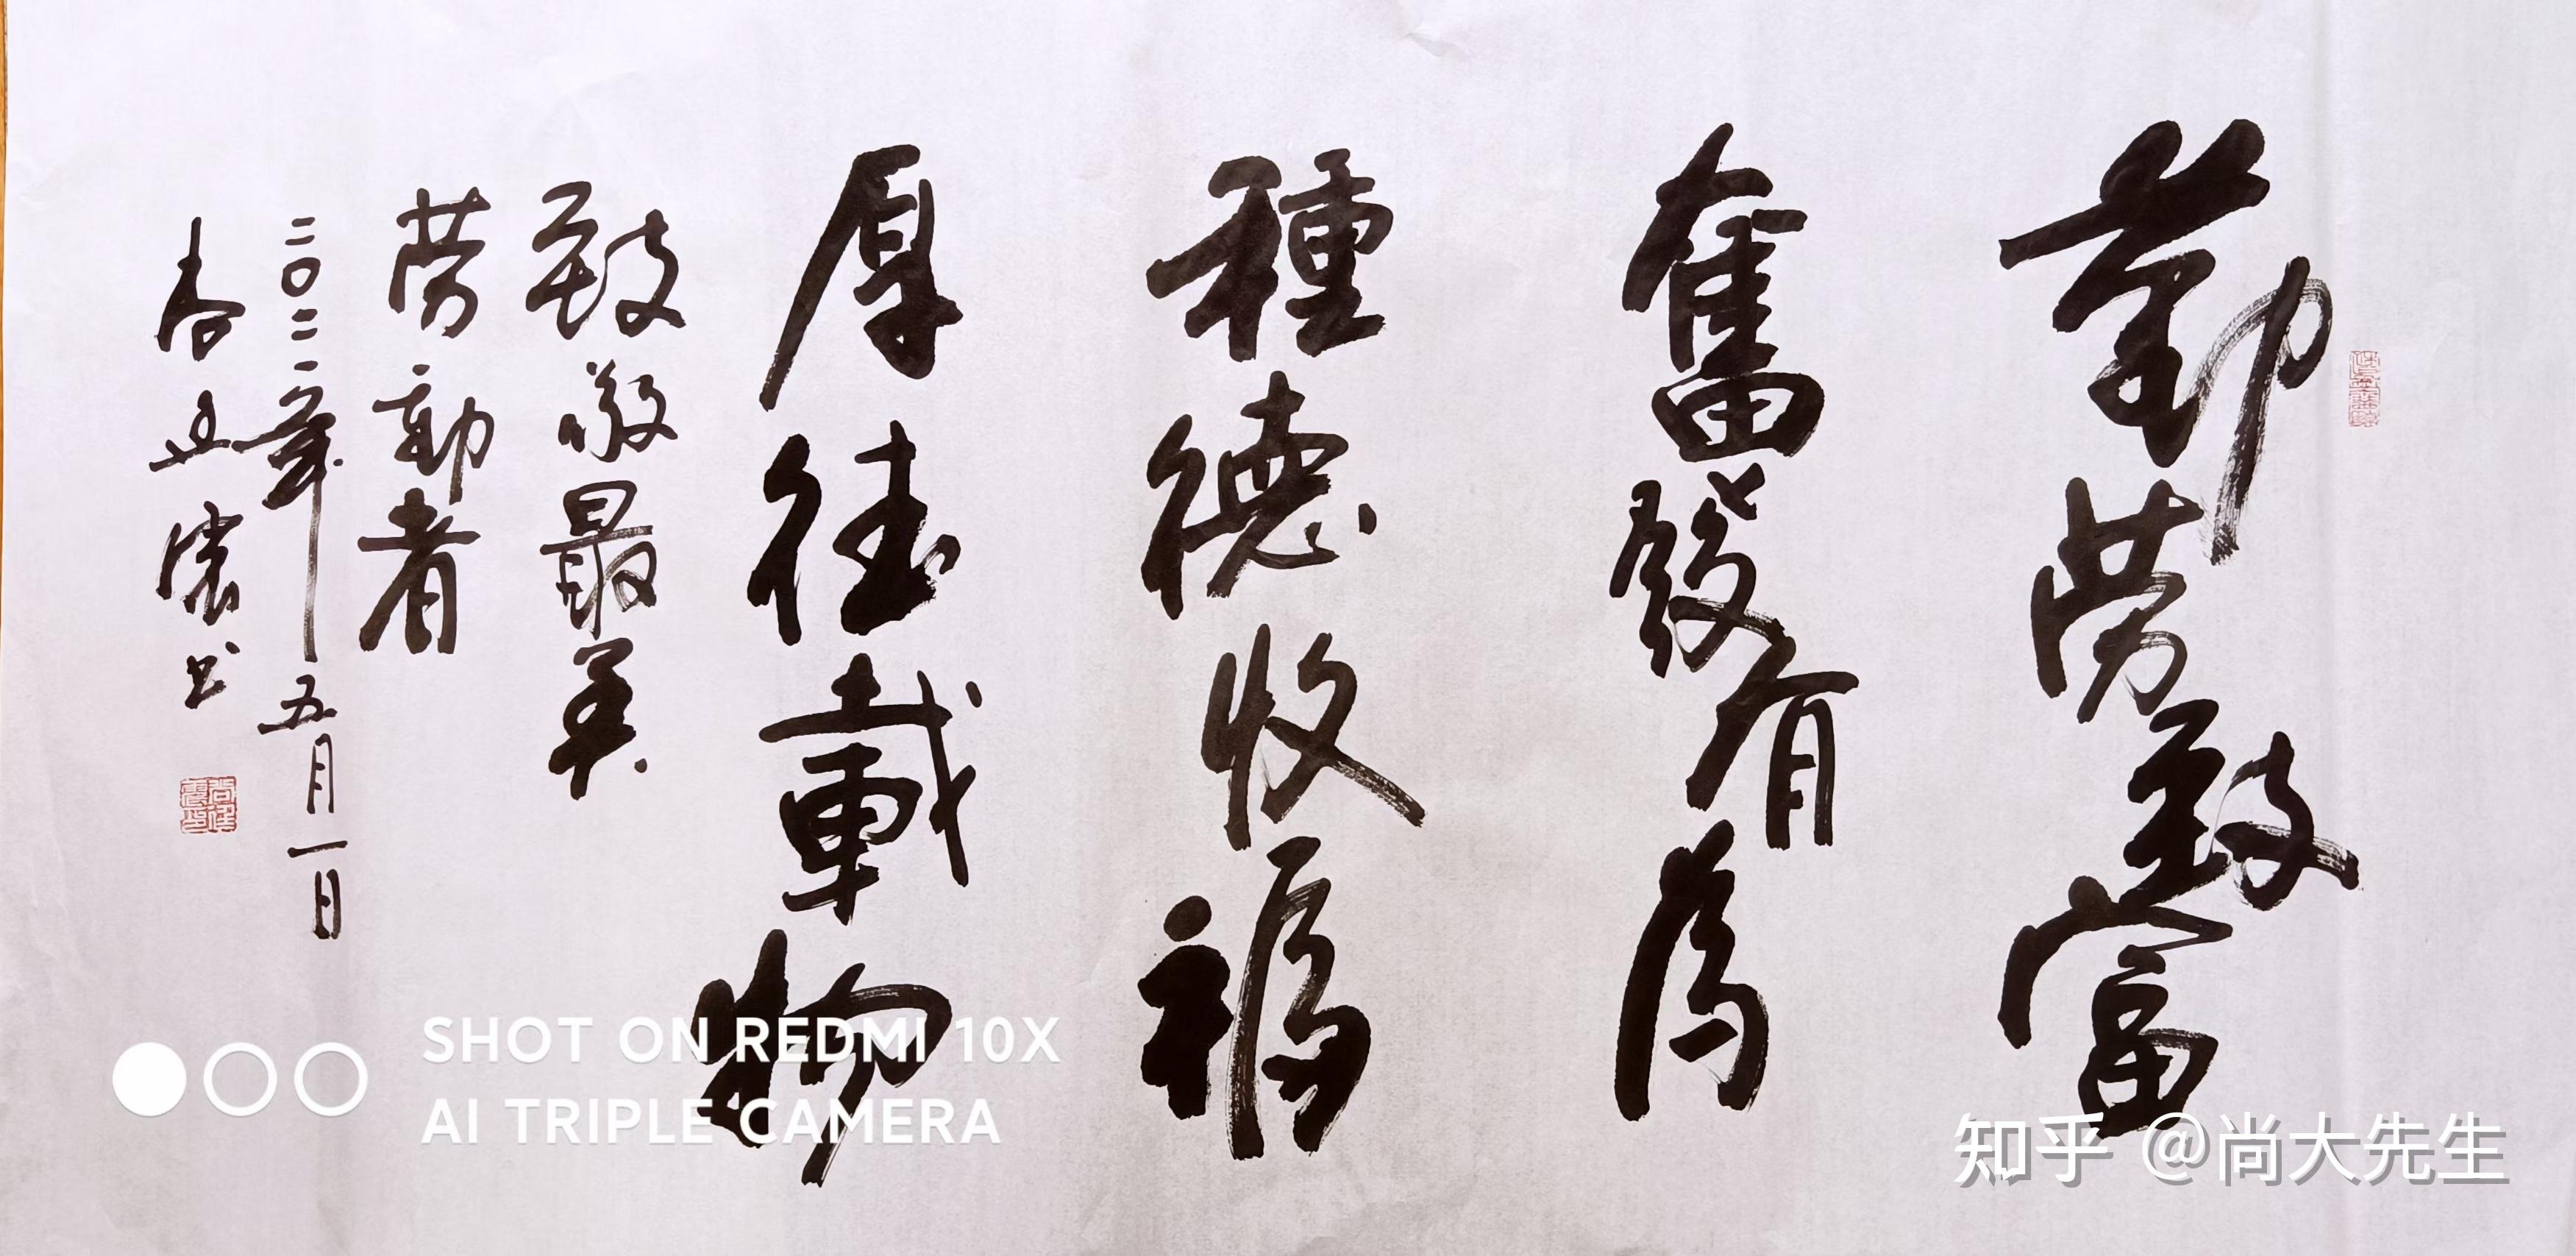 勤劳致富
奮發有為
種德收福
厚德載物
致敬最美
劳動者
二〇二二年五月一日
尚建震书
SHOT ON REDMI 10X
AI TRIPLE CAMERA
知乎 @尚大先生